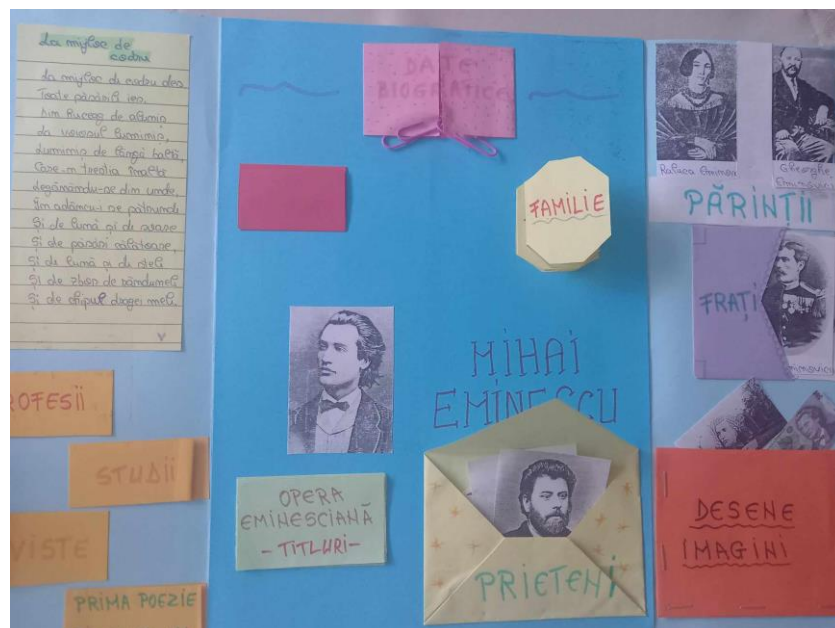 La mijloc de
codru
La mijloc de codru des
Toate păsările ies,
Din huceag de alunis
La voiosul luminiș,
Luminiș de lângă baltă,
Care-n trestia înaltă
Legănându-se din unde,
În adâncu-i se pătrunde
Și de lună și de soare
Și de păsări călătoare,
Și de lună și de stele
Și de zbor de rândunele
Și de chipul dragei mele.
OFESII
STUDII
VISTE
PRIMA POEZIE
DATE
BIOGRAFICE
FAMILIE
MIHAI
EMINESCU
OPERA
EMINESCIANĂ
- TITLURI -
PRIETENI
Raluca Eminovici
Gheorghe
Eminovici
PĂRINȚII
FRAȚI
DESENE
IMAGINI